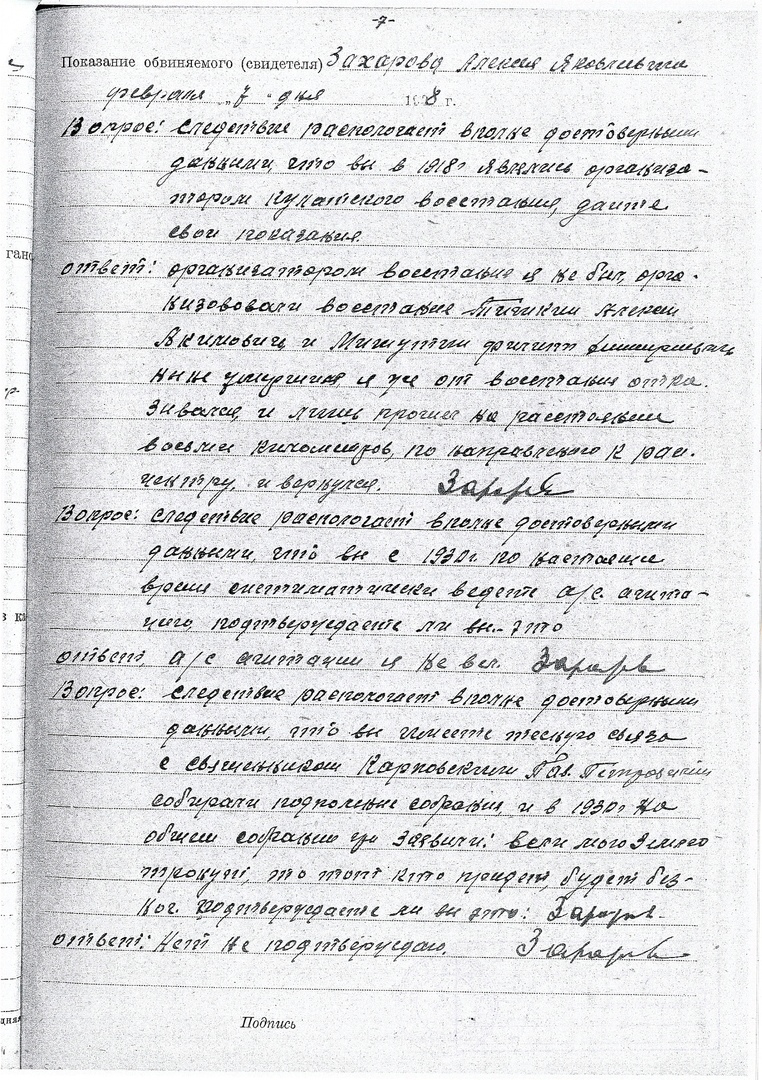 -7-
Показание обвиняемого (свидетеля) Захарова Алексея Яковлевича
февраля "7" дня 1938 г.
Вопрос: Следствие распологает вполне достоверными
данными, что вы в 1918г являлись организа-
тором кулатского восстания, дайте
свои показания.
ответ: организатором восстания я не был, орга-
низововали восстание Алексей
Акимович и Мишутин Филипп Дмитриевич
ныне умершие я же от восстания отка-
зывался, и лишь прошел на расстоянии
восьми километров, по направлению к рай-
центру, и вернулся. Захаров
Вопрос: Следствие распологает вполне достоверными
данными, что вы с 1930г. по настояще
время систиматически ведете а/с агита-
цию, подтверждаете ли вы это
ответ, а/с агитации я не вел. Захаров
Вопрос: Следствие распологает вполне достоверными
данными, что вы имеете тесную связь
с священником Карповским Пав. Петровичем
собирали подпольные собрания, и в 1930г на
общем собрании заявили: если мою землю
трокут, то тот кто придет, будет без
ног. Подтверждаете ли вы это: Захаров
ответ: Нет не подтверждаю. Захаров
Подпись